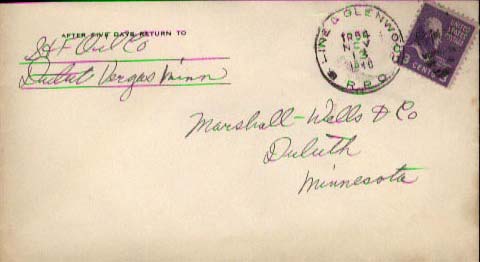 AFTER FIVE DAYS RETURN TO
S & F Oil Co
Vergas Minn
LINE & GLENWOOD
NOV
13
1940
R.P.O.
UNITED STATES
3 CENTS
Marshall-Wells & Co
Duluth
Minnesota